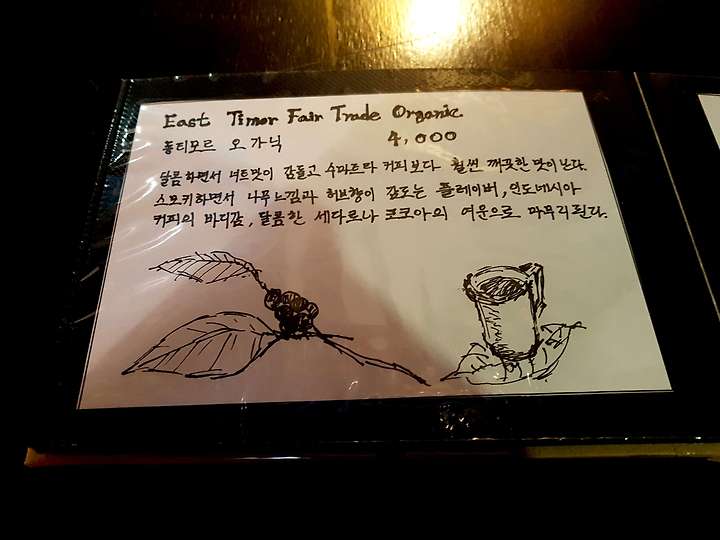 East Timor Fair Trade Organic
동티모르 오가닉 4,000
달콤하면서 너트맛이 감돌고 수마트라 커피보다 훨씬 깨끗한 맛이 난다.
스모키하면서 나무느낌과 허브향이 감도는 플레이버, 인도네시아
커피의 바디감, 달콤한 세다르나 코코아의 여운으로 마무리된다.